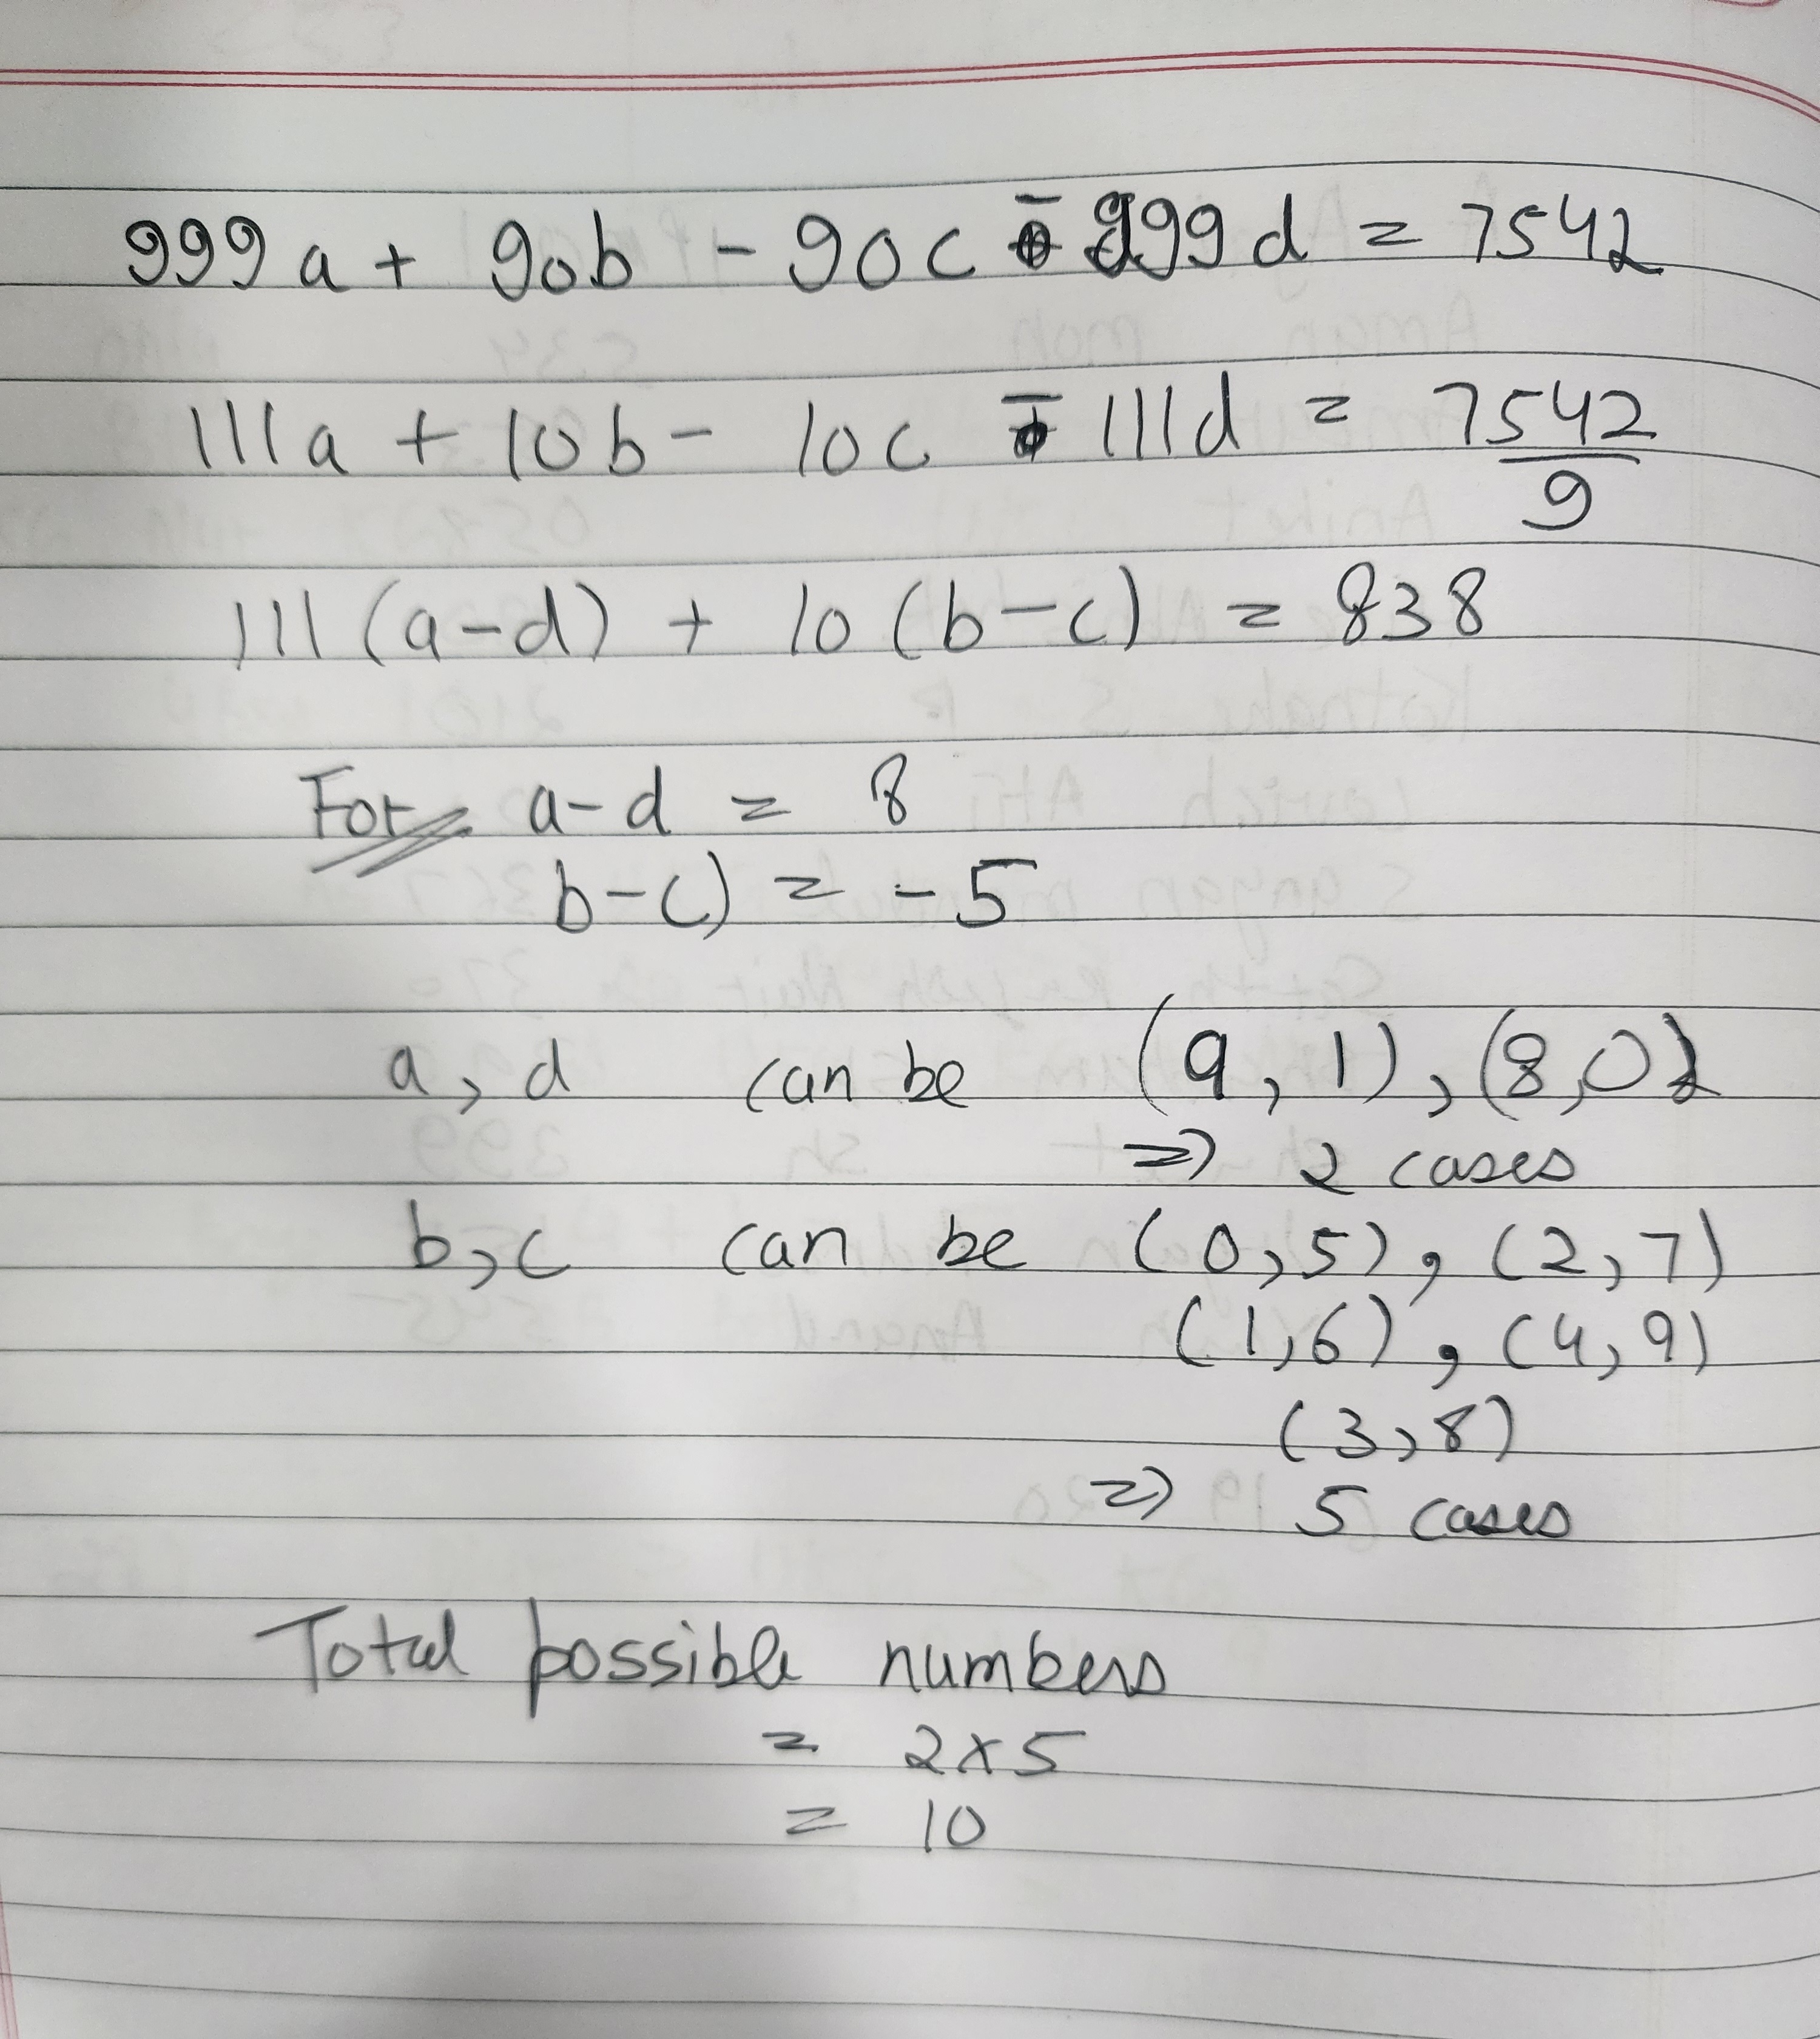 999a + 90b - 90c - 999d = 7542
111a + 10b - 10c - 111d = 7542/9
111(a-d) + 10(b-c) = 838
For a-d = 8
b-c) = -5
a, d can be (9, 1), (8,0)
=) 2 cases
b,c can be (0,5), (2,7)
(1,6), (4,9)
(3,8)
=) 5 cases
Total possible numbers
= 2x5
= 10